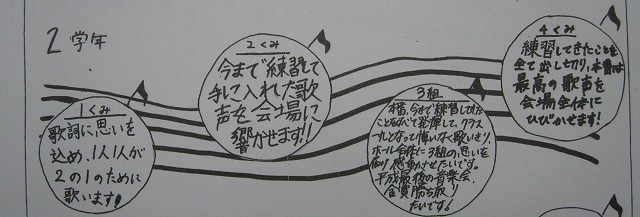 2学年
1くみ
歌詞に思いを
込め、1人1人が
2の1のために
歌います!
2くみ
今まで練習して
手に入れた歌
声を会場に
響かせます!!
3組
本番、今まで練習してきた
ことをすべて発揮して、クラス
一丸となって悔いなく歌いきり、
ホール全体に3組の思いを
感動させたいです。
平成最後の音楽会、
金賞勝ち取り
たいです!
4くみ
練習してきたことを
全て出し切り、本番は
最高の歌声を
会場全体に
ひびかせます!